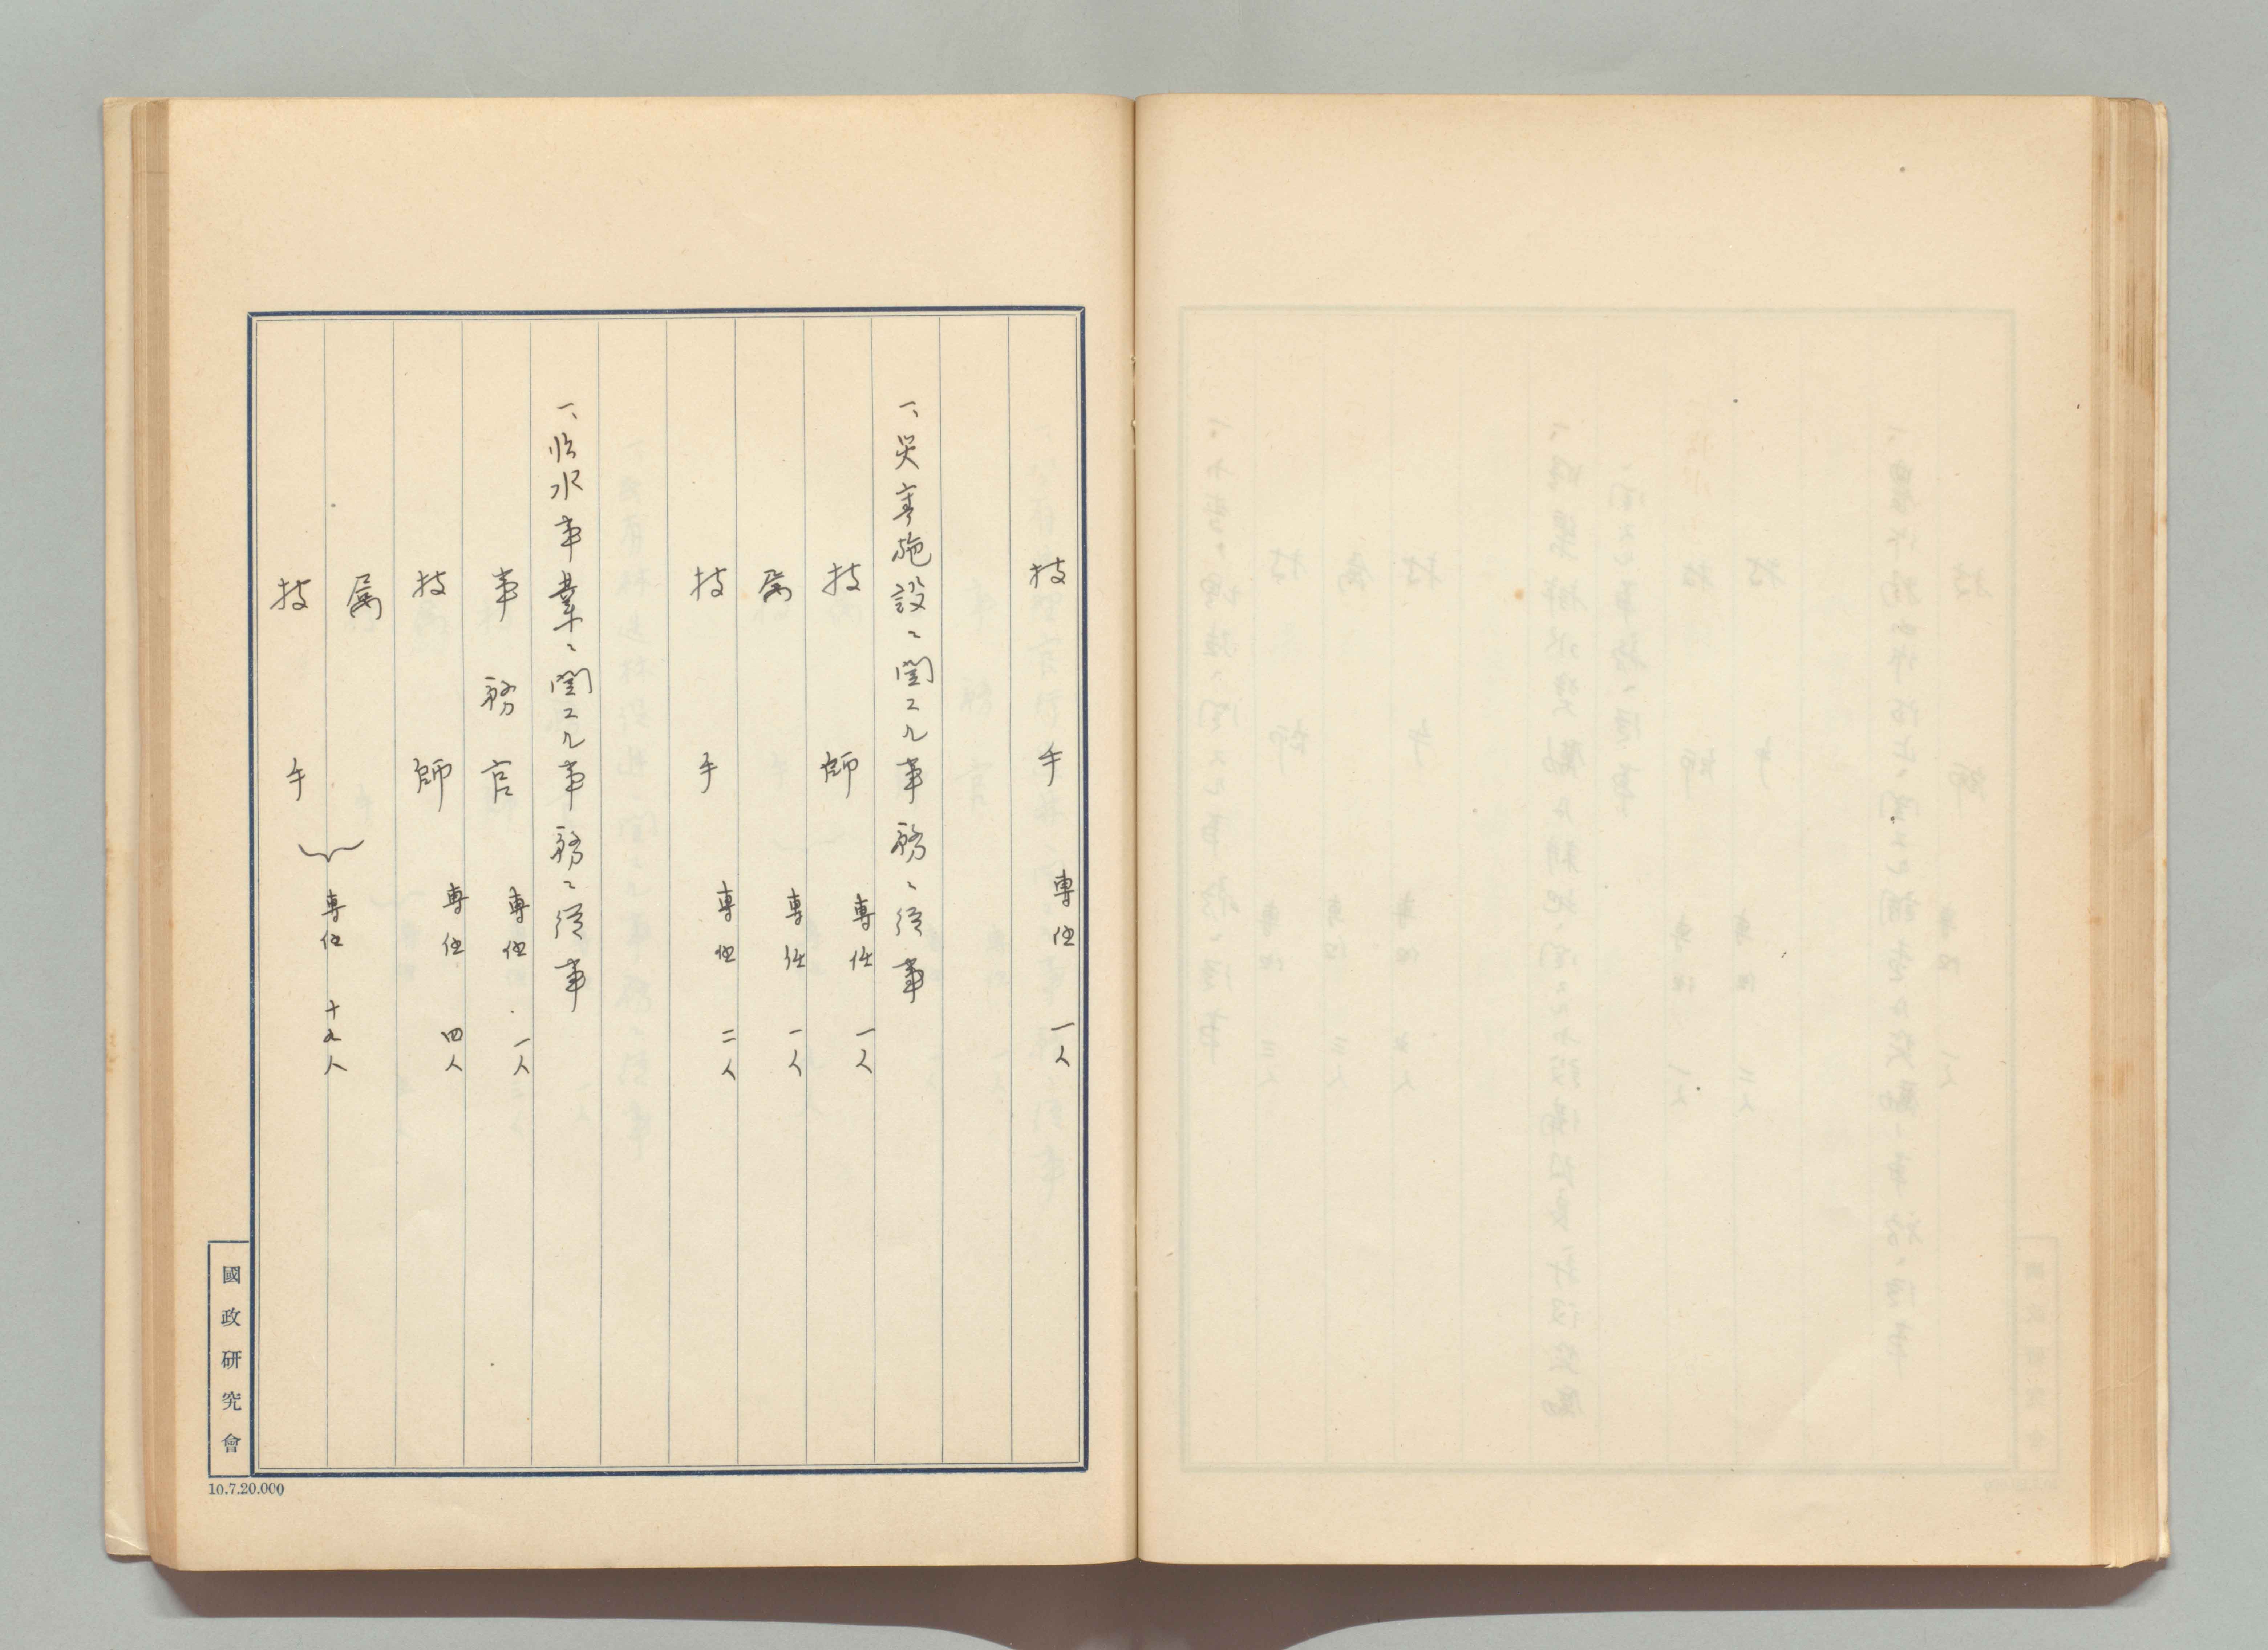 技手 専任 一人
一、災害施設ニ関スル事務ニ従事
技師 専任 一人
属 専任 一人
技手 専任 二人
一、水事業ニ関スル事務ニ従事
事務官 専任 一人
技師 専任 四人
属
技手 専任 十九人
國政研究會
10.7.20.000